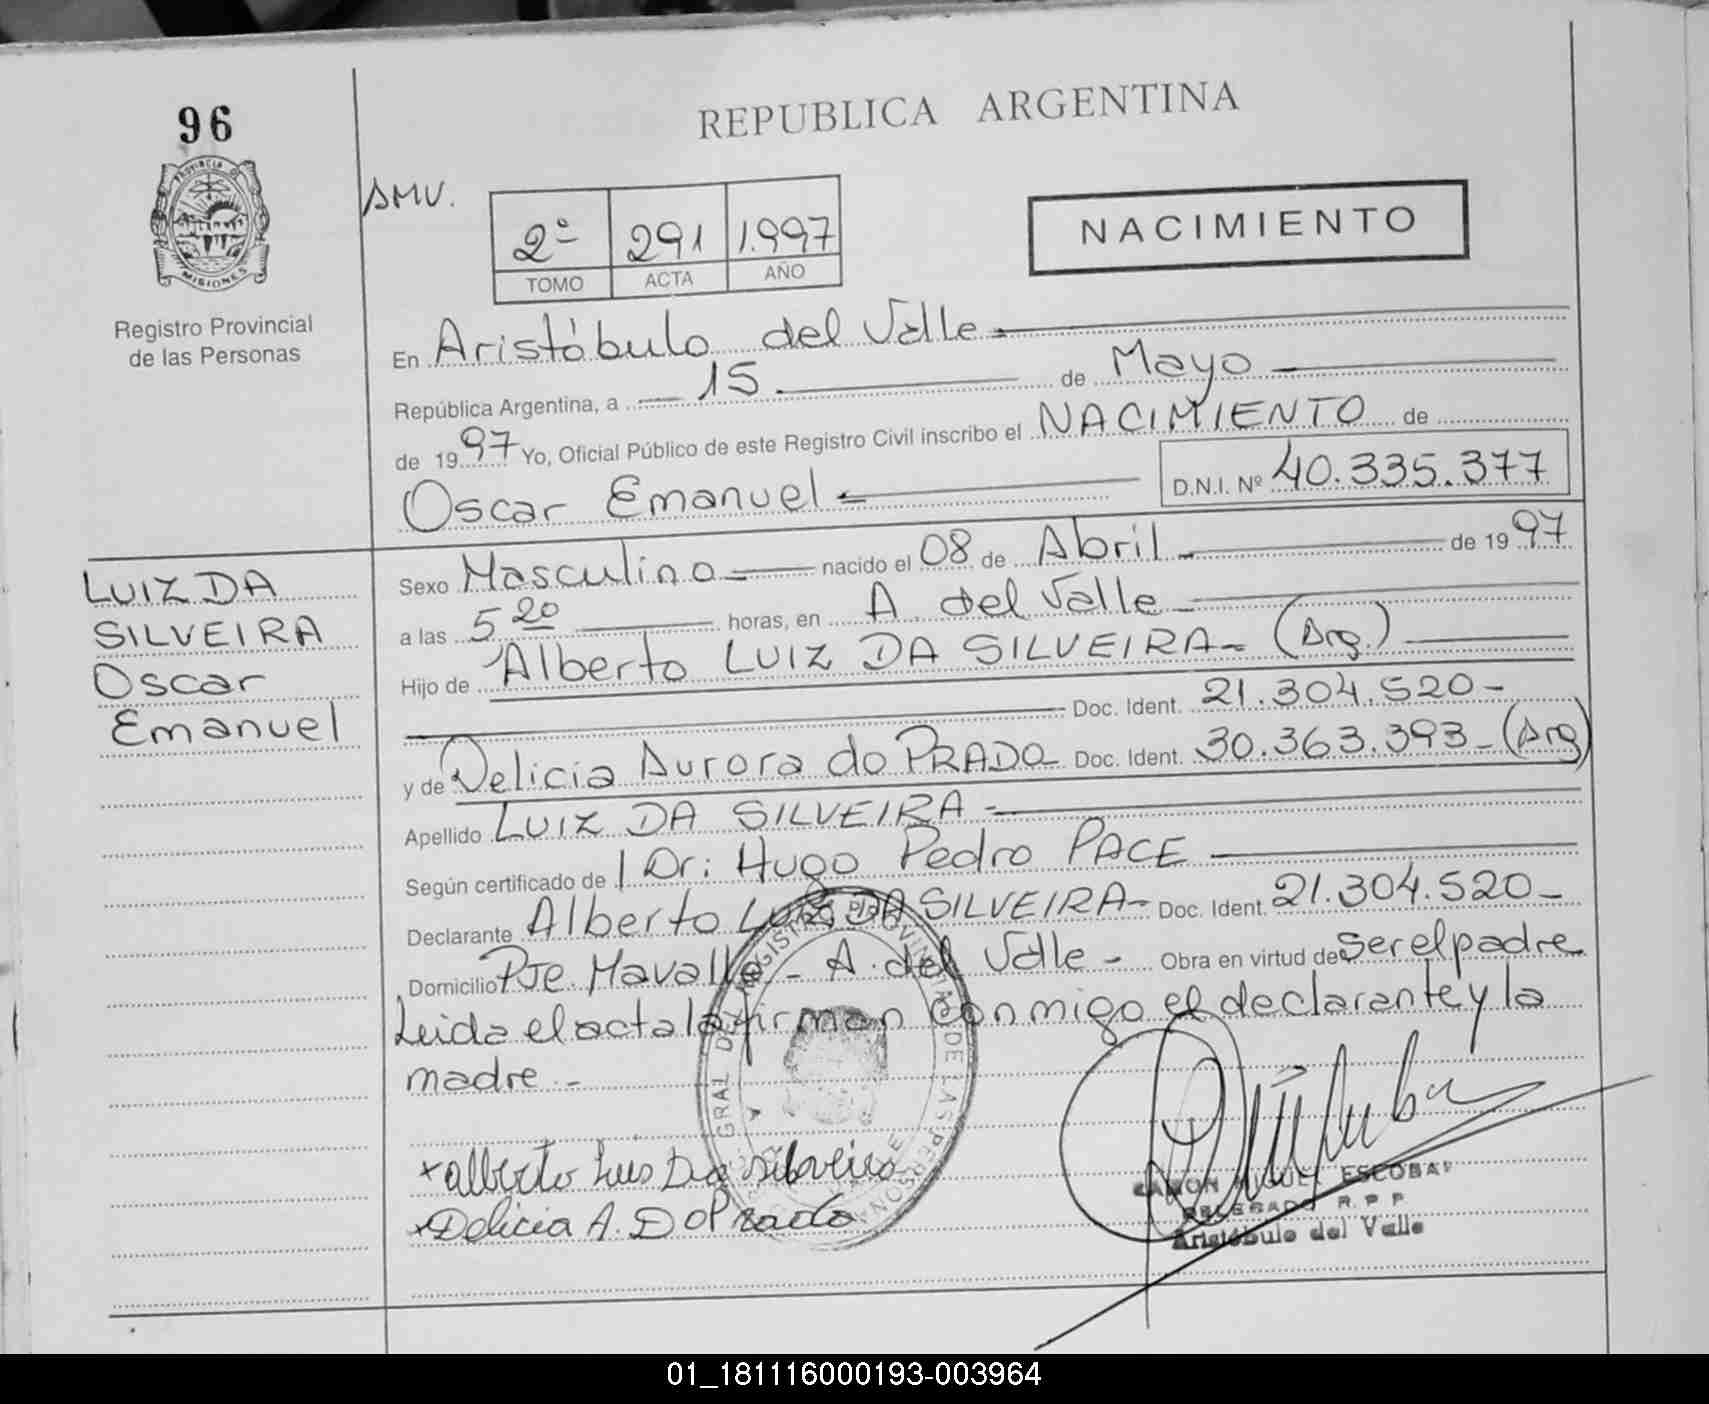 96
REPUBLICA ARGENTINA
PROVINCIA DE
MISIONES
Registro Provincial
de las Personas
AMV.
2º 291 1.997
TOMO ACTA AÑO
NACIMIENTO
En Aristóbulo del Valle.-
República Argentina, a 15 de Mayo
de 1997 Yo, Oficial Público de este Registro Civil inscribo el NACIMIENTO de
Oscar Emanuel D.N.I. Nº 40.335.377
LUIZ DA
SILVEIRA
Oscar
Emanuel
Sexo Masculino nacido el 08 de Abril de 1997
a las 5 20 horas, en A. del Valle
Hijo de Alberto LUIZ DA SILVEIRA- (Arg.)
Doc. Ident. 21.304.520-
y de Delicia Aurora do PRADO Doc. Ident. 30.363.393-(Arg)
Apellido LUIZ DA SILVEIRA-
Según certificado de Dr: Hugo Pedro PACE
Declarante Alberto LUIZ DA SILVEIRA- Doc. Ident. 21.304.520-
Domicilio Pje. - A. del Valle - Obra en virtud de ser el padre
Leida el acta la firman conmigo el declarante y la
madre.-
GRAL DEL REGISTRO PROVINCIAL DE LAS PERSONAS
Alberto Luis Da Silveira
Delicia A. Do Prado
RAMON MIGUEL ESCOBAR
DELEGADO R.P.P.
Aristóbulo del Valle
01_181116000193-003964